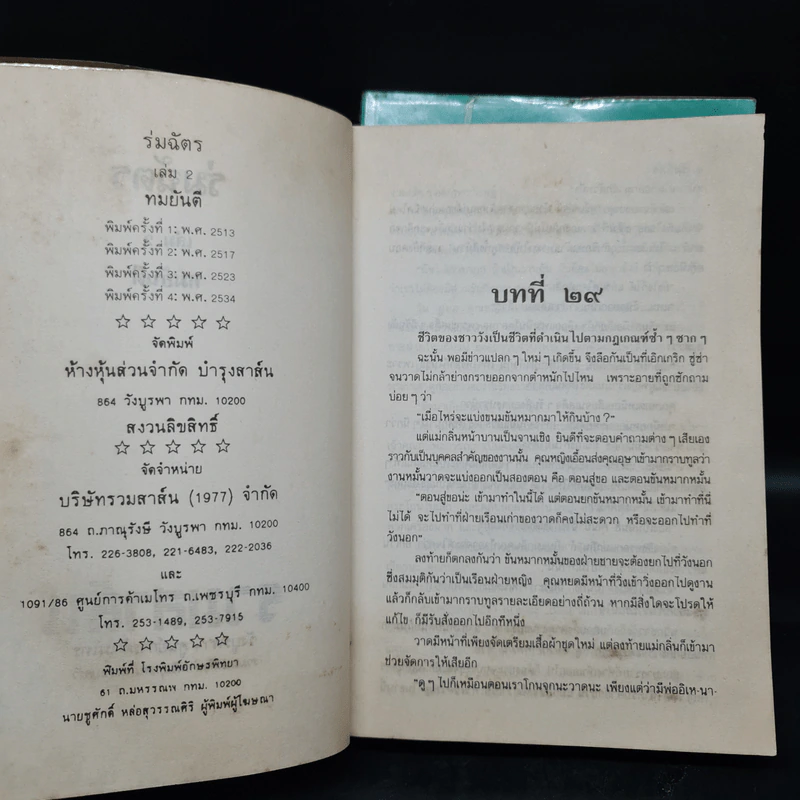 ร่มฉัตร
เล่ม 2
ทมยันตี
พิมพ์ครั้งที่ 1: พ.ศ. 2513
พิมพ์ครั้งที่ 2: พ.ศ. 2517
พิมพ์ครั้งที่ 3: พ.ศ. 2523
พิมพ์ครั้งที่ 4: พ.ศ. 2534
☆ ☆ ☆ ☆ ☆
จัดพิมพ์
ห้างหุ้นส่วนจำกัด บำรุงสาส์น
864 วังบูรพา กทม. 10200
สงวนลิขสิทธิ์
☆ ☆ ☆ ☆ ☆
จัดจำหน่าย
บริษัทรวมสาส์น (1977) จำกัด
864 ถ.ภาณุรังษี วังบูรพา กทม. 10200
โทร. 226-3808, 221-6483, 222-2036
และ
1091/86 ศูนย์การค้าเมโทร ถ.เพชรบุรี กทม. 10400
โทร. 253-1489, 253-7915
☆ ☆ ☆ ☆ ☆
พิมพ์ที่ โรงพิมพ์อักษรพิทยา
61 ถ.มหรรณพ กทม. 10200
นายชูศักดิ์ หล่อสุวรรณศิริ ผู้พิมพ์ผู้โฆษณา
บทที่ ๒๙
ชีวิตของชาววังเป็นชีวิตที่ดำเนินไปตามกฎเกณฑ์ซ้ำ ๆ ซาก ๆ
ฉะนั้น พอมีข่าวแปลก ๆ ใหม่ ๆ เกิดขึ้น จึงลือกันเป็นที่เอิกเกริก ซู่ซ่า
จนวาดไม่กล้าย่างกรายออกจากตำหนักไปไหน เพราะอายที่ถูกซักถาม
บ่อย ๆ ว่า
"เมื่อไหร่จะแบ่งขนมขันหมากมาให้กินบ้าง ?"
แต่แม่กลิ่นหน้าบานเป็นจานเชิง ยินดีที่จะตอบคำถามต่าง ๆ เสียเอง
ราวกับเป็นบุคคลสำคัญของงานนั้น คุณหญิงเอื้อนส่งคุณอุษาเข้ามากราบทูลว่า
งานหมั้นวาดจะแบ่งออกเป็นสองตอน คือ ตอนสู่ขอ และตอนขันหมากหมั้น
"ตอนสู่ขอน่ะ เข้ามาทำในนี้ได้ แต่ตอนยกขันหมากหมั้น เข้ามาทำที่นี่
ไม่ได้ จะไปทำที่ฝ่ายเรือนเก่าของวาดก็คงไม่สะดวก หรือจะออกไปทำที่
วังนอก"
ลงท้ายก็ตกลงกันว่า ขันหมากหมั้นของฝ่ายชายจะต้องยกไปที่วังนอก
ซึ่งสมมุติกันว่าเป็นเรือนฝ่ายหญิง คุณหยดมีหน้าที่วิ่งเข้าวิ่งออกไปดูงาน
แล้วก็กลับเข้ามากราบทูลรายละเอียดอย่างถี่ถ้วน หากมีสิ่งใดจะโปรดให้
แก้ไข ก็มีรับสั่งออกไปอีกทีหนึ่ง
วาดมีหน้าที่เพียงจัดเตรียมเสื้อผ้าชุดใหม่ แต่ลงท้ายแม่กลิ่นก็เข้ามา
ช่วยจัดการให้เสียอีก
"ดู ๆ ไปก็เหมือนตอนเราโกนจุกนะวาดนะ เพียงแต่ว่ามีพ่ออิเห-นา-